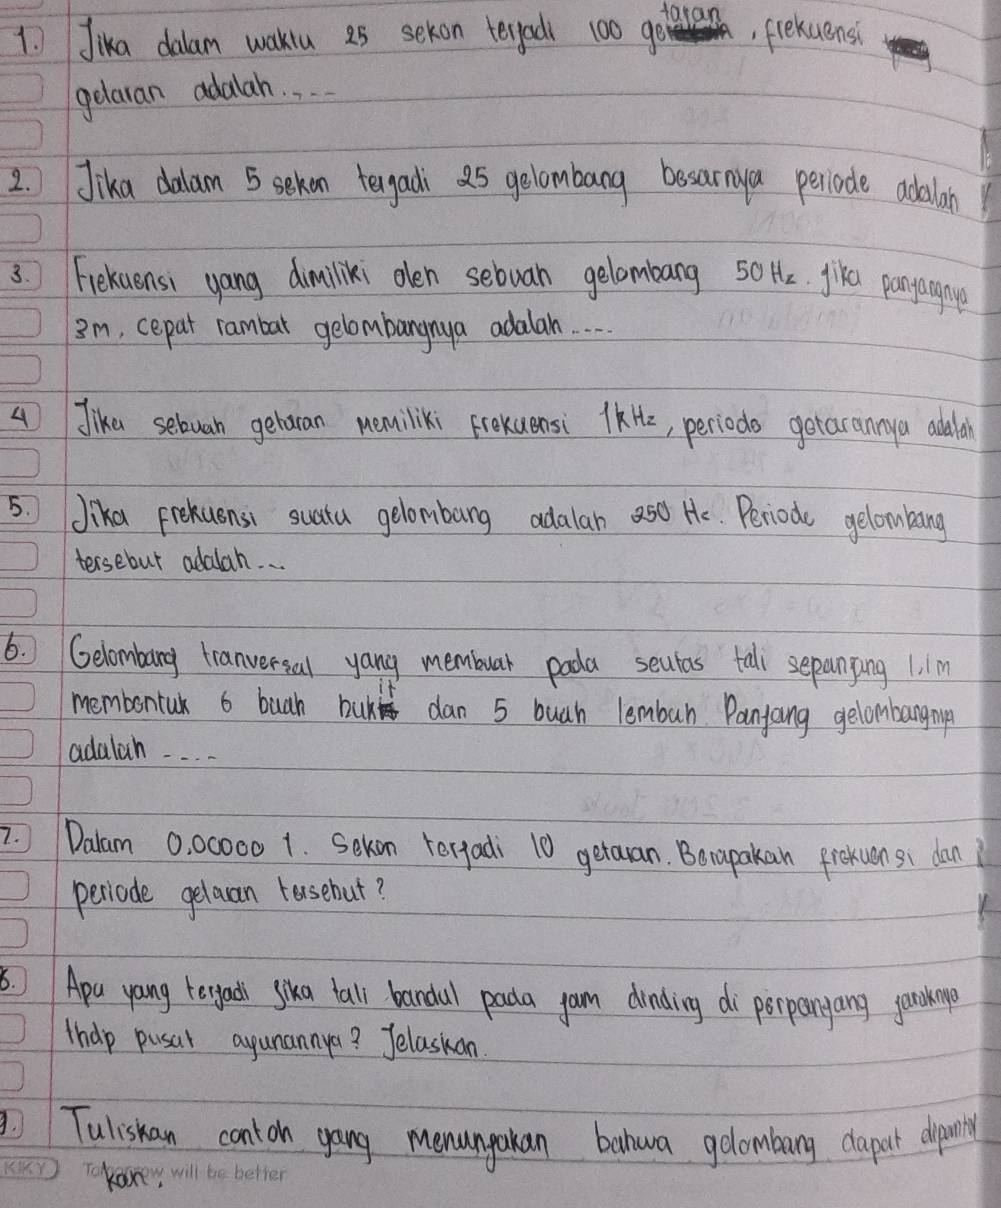 1. Jika dalam waktu 25 sekon terjadi 100 getaran, frekuensi
getaran adalah....
2. Jika dalam 5 sekon terjadi 25 gelombang besarnya periode adalah
3. Frekuensi yang dimiliki oleh sebuah gelombang 50 Hz. jika panjangnya
3m, cepat rambat gelombangnya adalah....
4 Jika sebuah getaran memiliki frekuensi 1kHz, periode getarannya adalah
5. Jika frekuensi suatu gelombang adalah 250 Hz. Periode gelombang
tersebut adalah...
6. Gelombang tranversal yang membuat pada seutas tali sepanjang 1,1m
membentuk 6 buah bukit dan 5 buah lembah Panjang gelombangnya
adalah ....
7. Dalam 0.00000 1. Sekon terjadi 10 getaran. Berapakah frekuensi dan
periode getaran tersebut?
8. Apa yang terjadi jika tali bandul pada jam dinding di perpanjang jaraknya
thdp pusat ayunannya? Jelaskan.
9. Tuliskan contoh yang menunjakan bahwa gelombang dapat dipantul
kan.
KIKY Tomorrow will be better